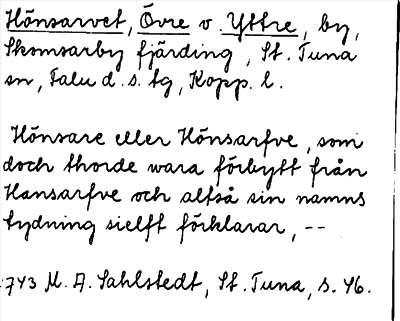 Hönsarvet, Övre o. Yttre, by,
Skomsarby fjärding, St. Tuna
sn, Falu d. s. tg, Kopp. l.
Hönsare eller Hönsarfve, som
doch thorde wara förbytt från
Hansarfve och altså sin namns
tydning sielft förklarar, --
:743 M. A. Sahlstedt, St. Tuna, s. 46.